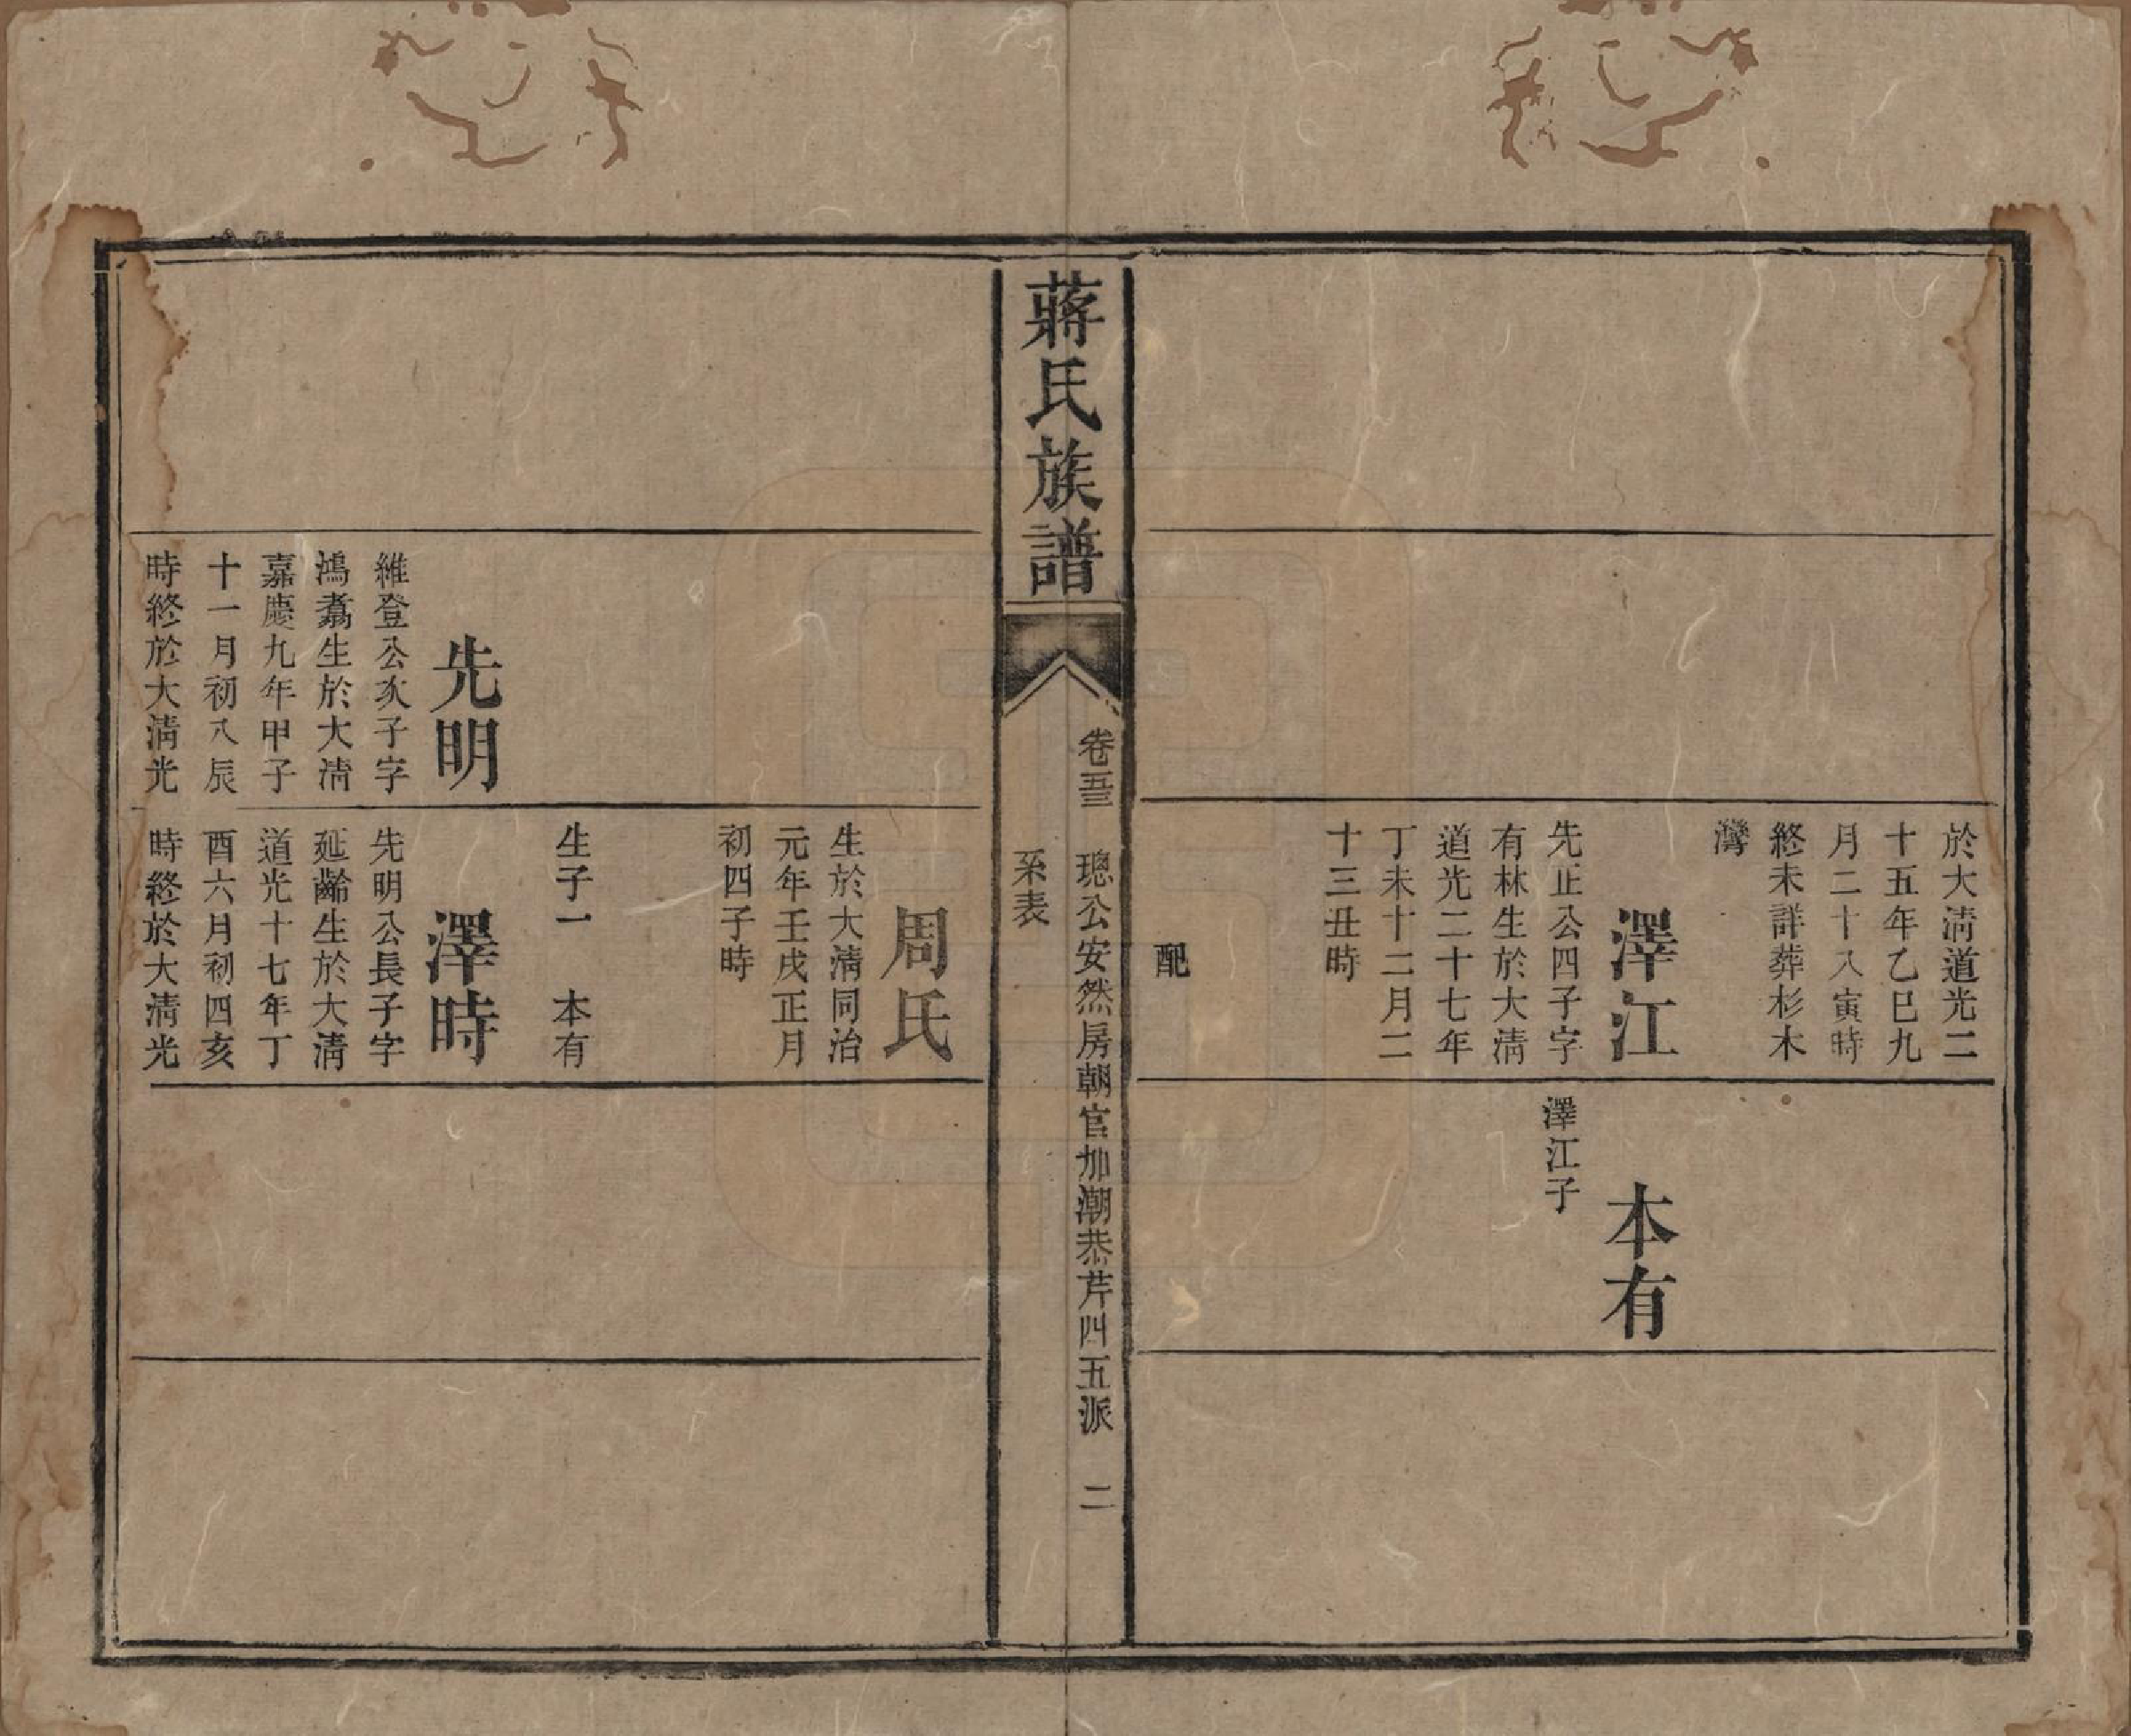 於大淸道光二
十五年乙巳九
月二十八寅時
終未詳葬杉木
灣
澤江
先正公四子字
有林生於大淸
道光二十七年
丁未十二月二
十三丑時
配
本有
澤江子
蔣氏族譜
卷五三
璁公安然房朝官加潮恭芹四五派
二
系表
周氏
生於大淸同治
元年壬戌正月
初四子時
生子一
本有
先明
維登公次子字
鴻翥生於大淸
嘉慶九年甲子
十一月初八辰
時終於大淸光
澤時
先明公長子字
延齡生於大淸
道光十七年丁
酉六月初四亥
時終於大淸光